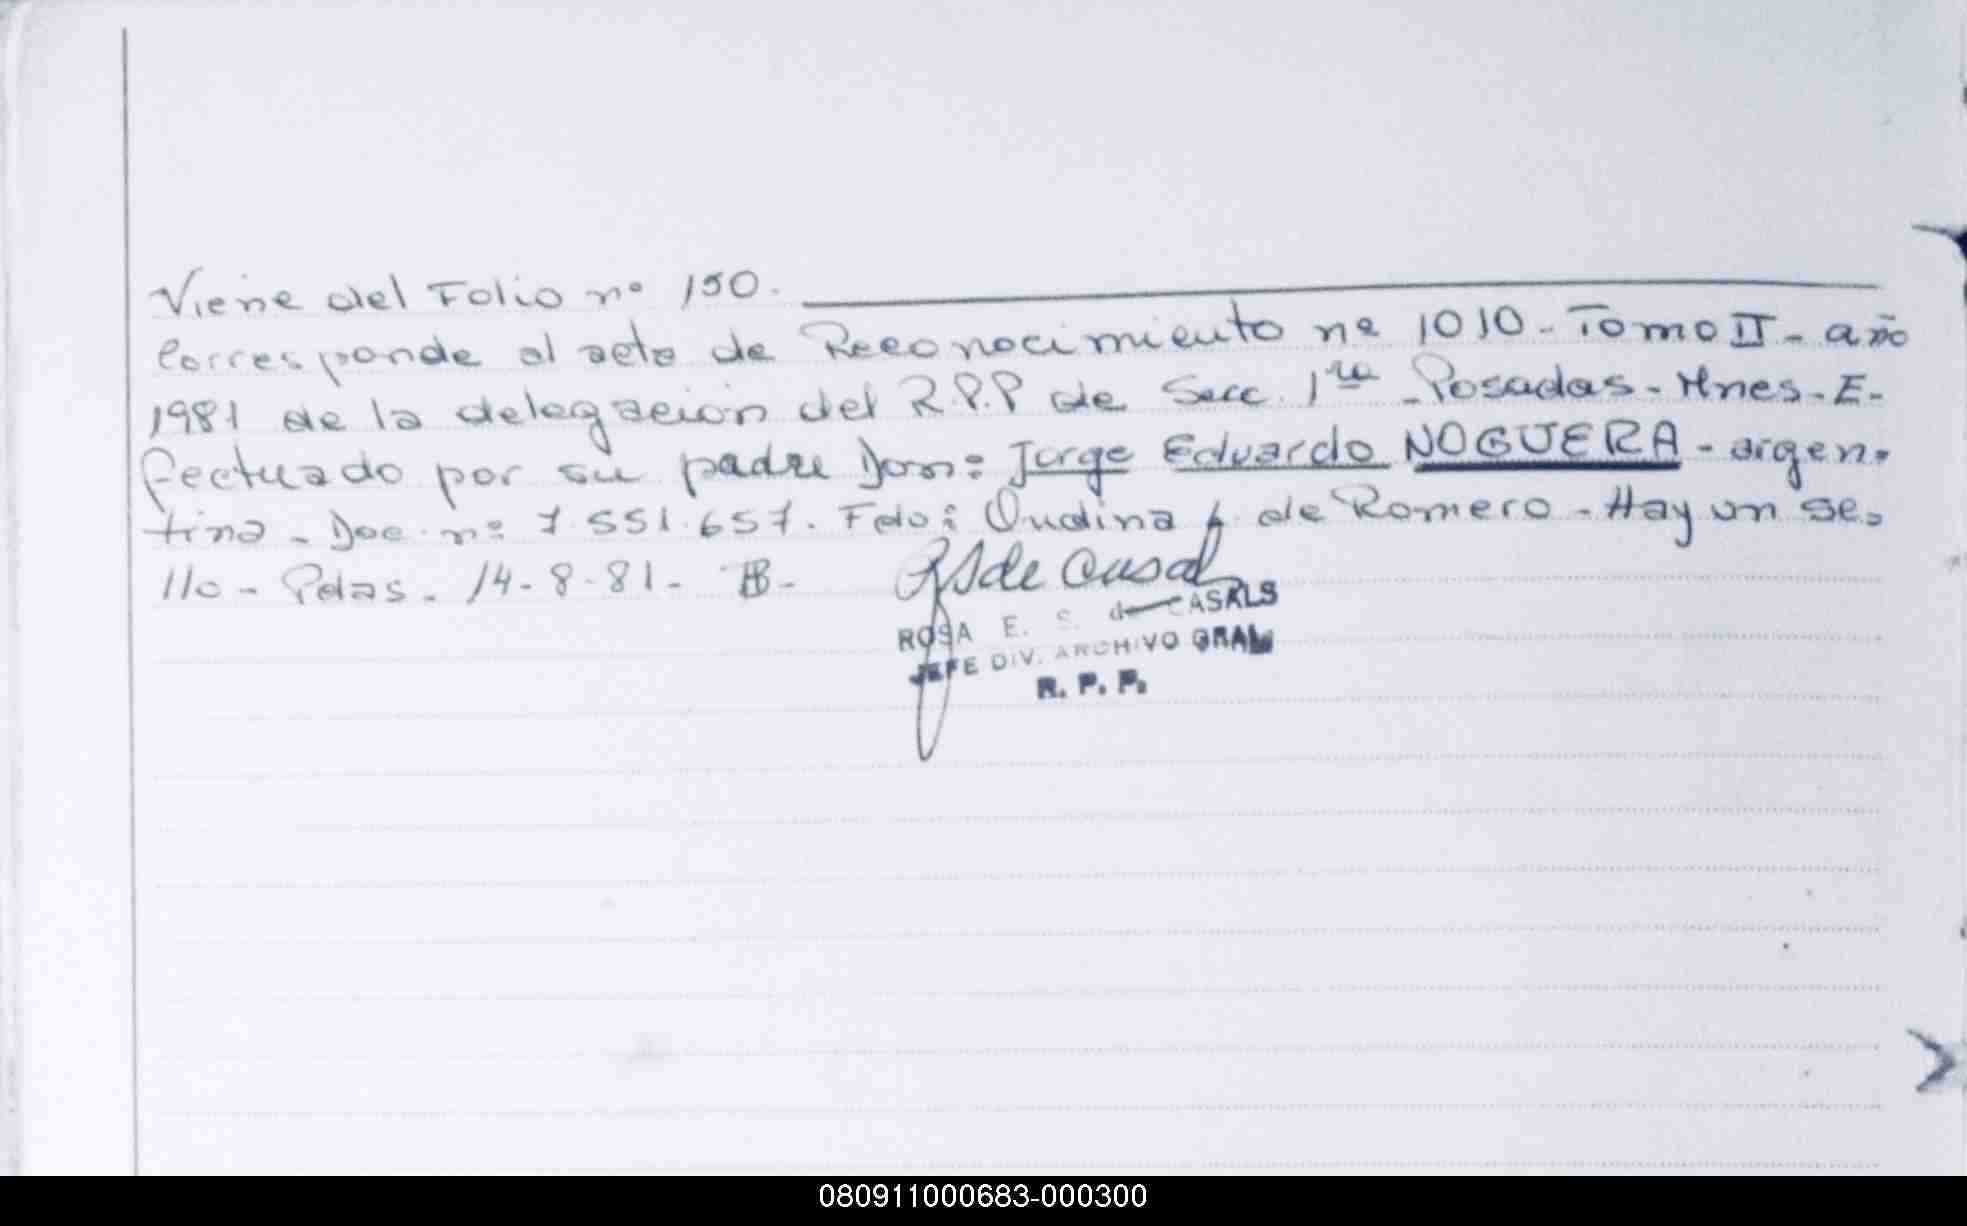 Viene del Folio nº 150.
Corresponde al acta de Reconocimiento nº 1010 - Tomo II - año
1981 de la delegación del R.P.P de Secc. 1ra - Posadas - Mnes - E-
fectuado por su padre Don: Jorge Eduardo NOGUERA - argen-
tino - Doc. nº 7.551.657. Fdo: Ondina de Romero - Hay un se-
llo - Pdas. 14-8-81-
ROSA E. S. de CASALS
JEFE DIV. ARCHIVO GRAL
R. P. P.
080911000683-000300